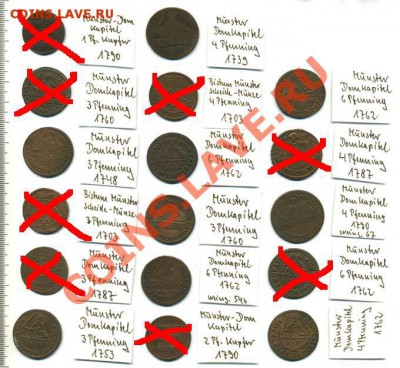 COINS.LAVE.RU
Münster-Dom
Kapitel
1 Pf. Kupfer
1790
Münster
Domkapitel
4 Pfenning
1739
Münster
Domkapitel
3 Pfenning
1760
Bistum Münster
Scheide-Münze
4 Pfenning
1703
Münster
Domkapitel
6 Pfenning
1762
Münster
Domkapitel
3 Pfenning
1748
Münster
Domkapitel
6 Pfenning
1762
Münster
Domkapitel
4 Pfenning
1787
Bistum Münster
Scheide-Münze
3 Pfenning
1703
Münster
Domkapitel
3 Pfenning
1760
Münster
Domkapitel
4 Pfenning
1790
Münster
Domkapitel
3 Pfenning
1787
Münster
Domkapitel
6 Pfenning
1762
Münster
Domkapitel
6 Pfenning
1762
Münster
Domkapitel
3 Pfenning
1753
Münster-Dom
Kapitel
2 Pf. Kupfer
1790
Münster
Domkapitel
4 Pfenning
1762
COINS.LAVE.RU